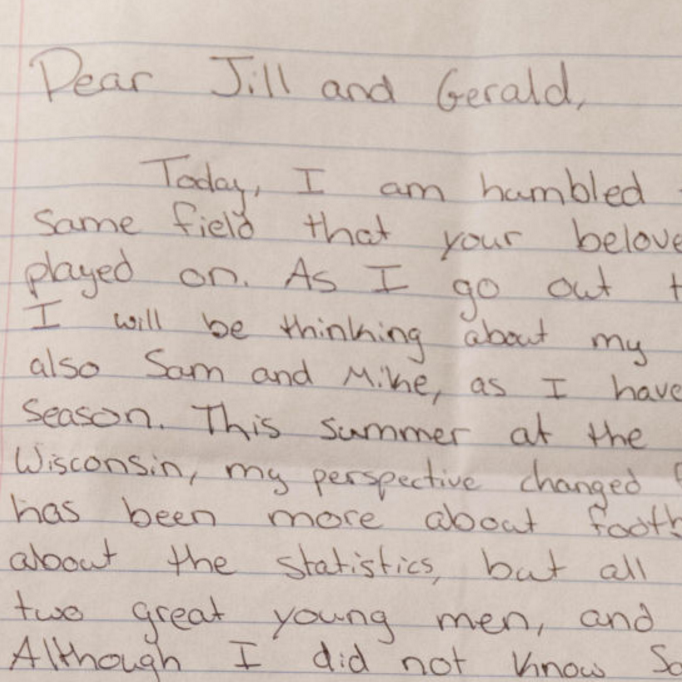 Dear Jill and Gerald,
Today, I am humbled
same field that your belove
played on. As I go out t
I will be thinking about my
also Sam and Mike, as I have
season. This summer at the
Wisconsin, my perspective changed f
has been more about footb
about the statistics, but all
two great young men, and
Although I did not know Sa